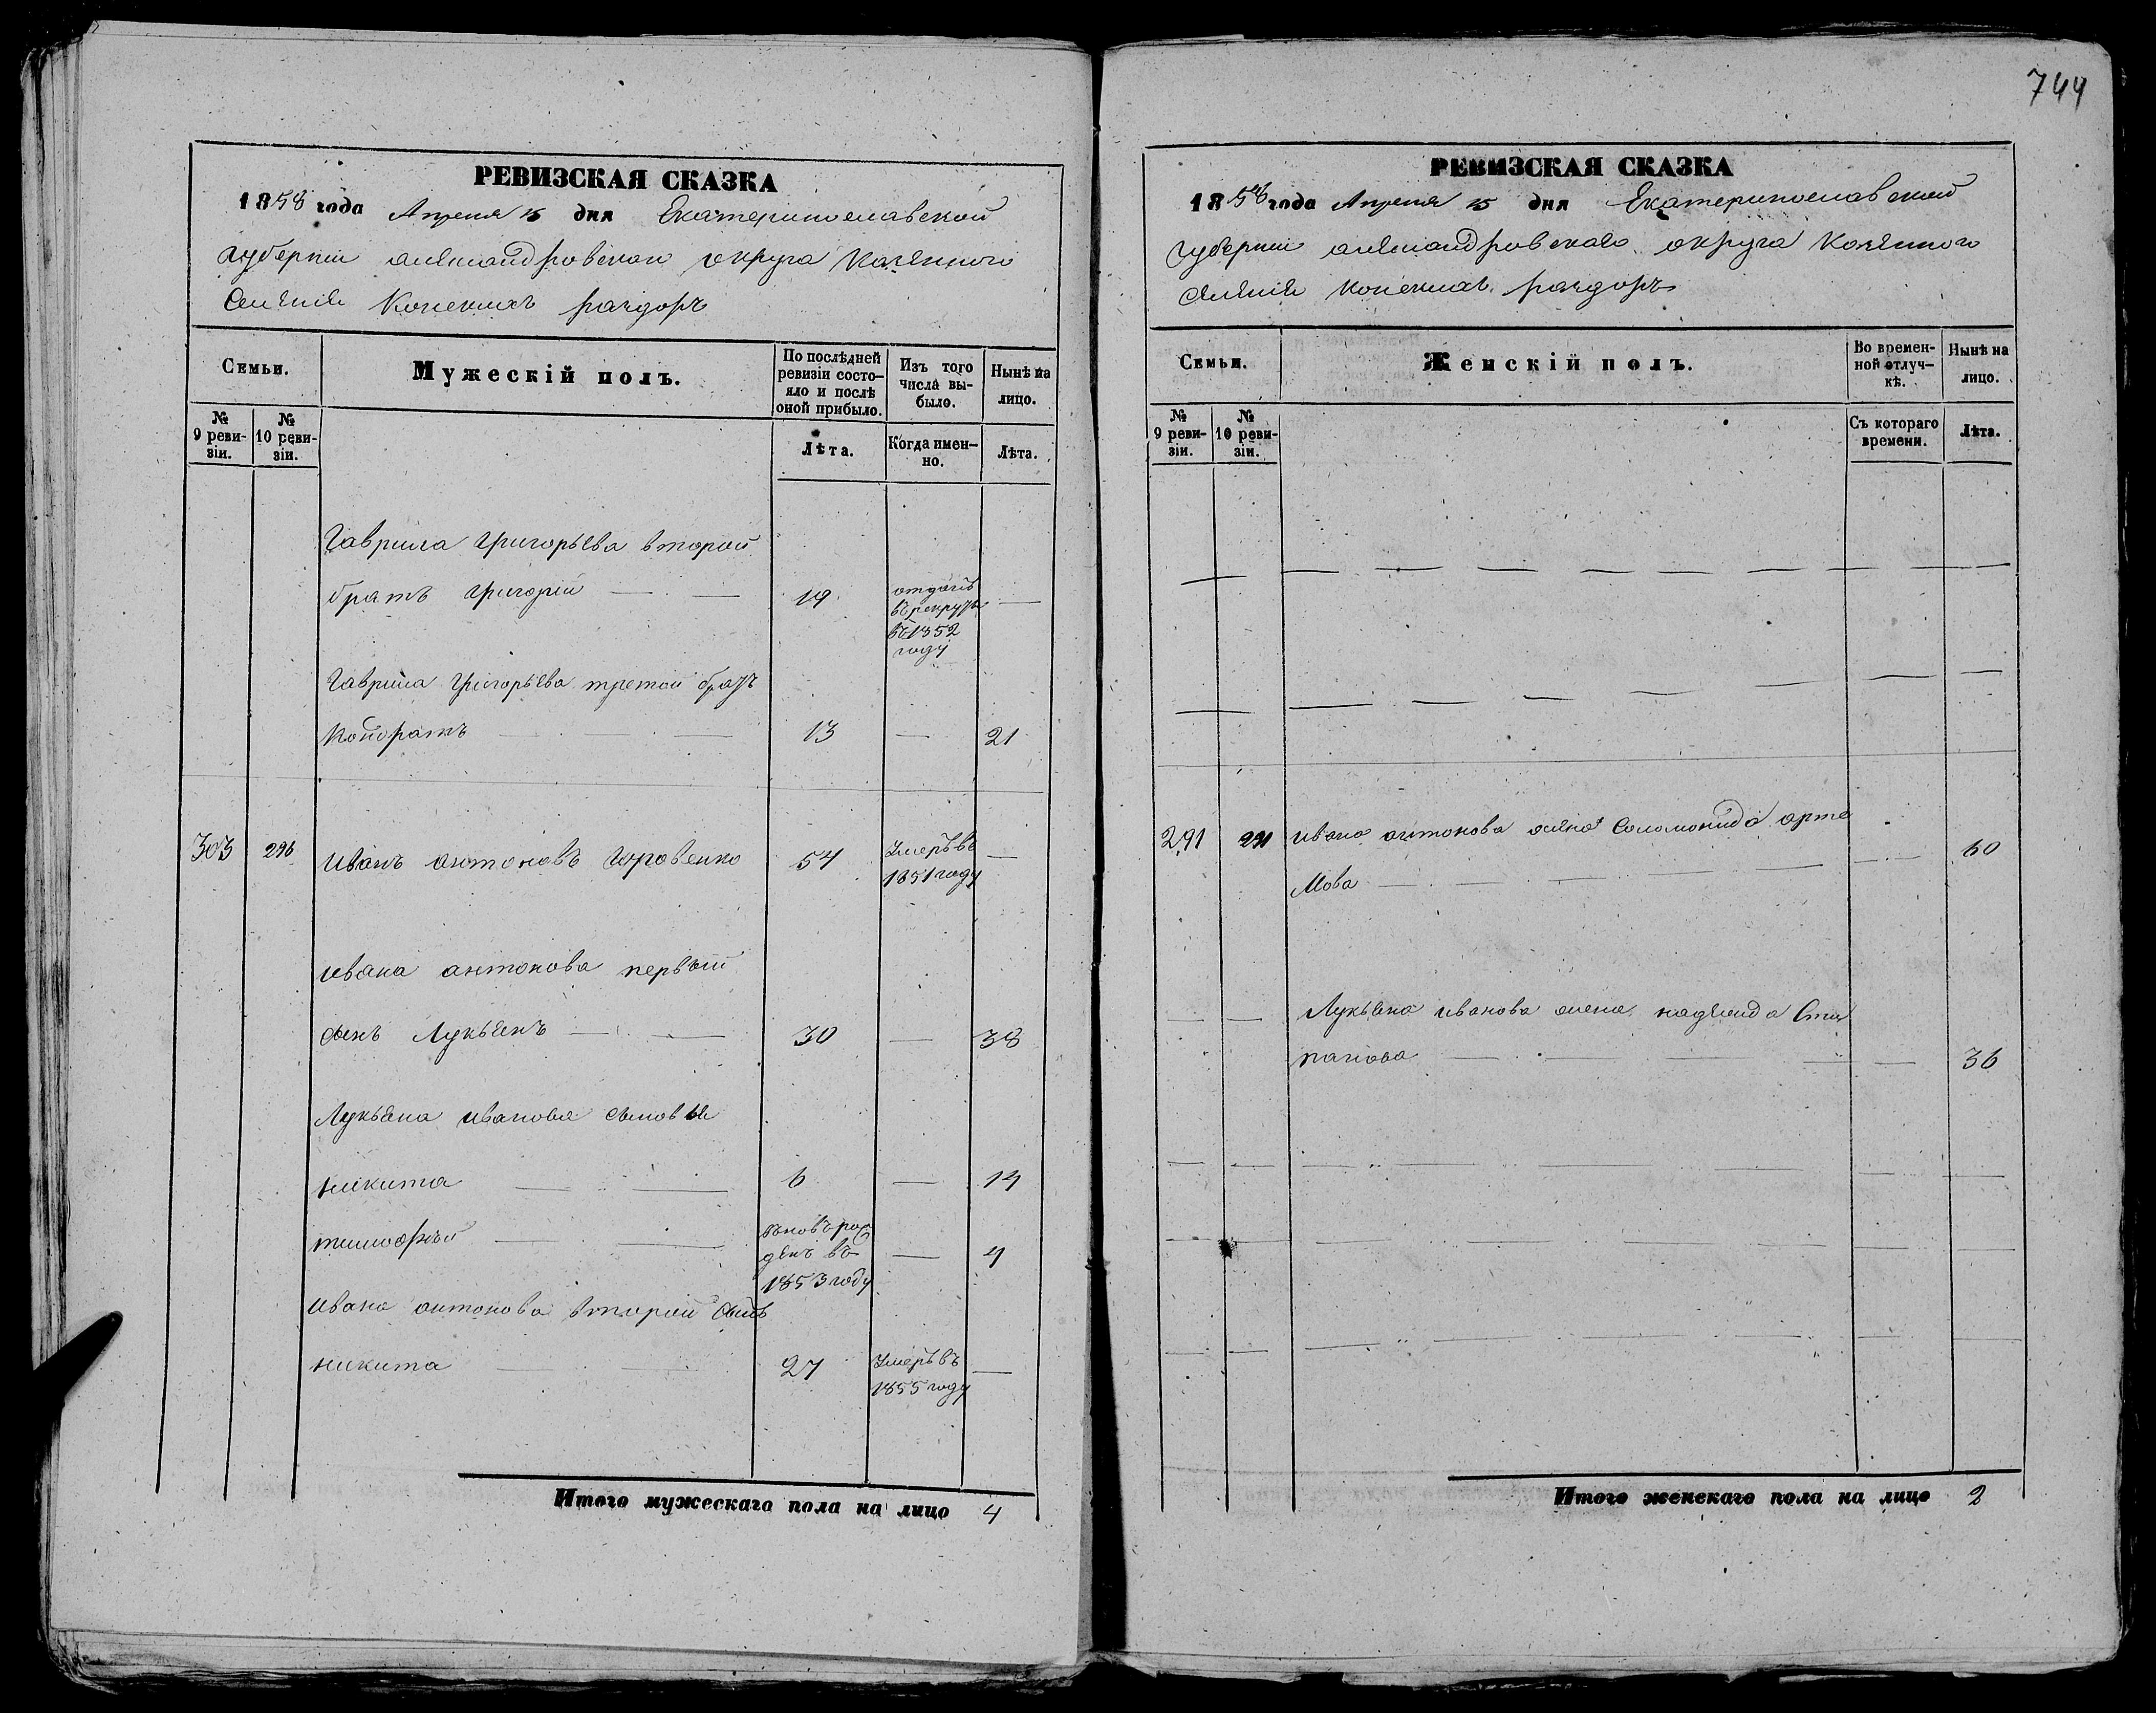 744
РЕВИЗСКАЯ СКАЗКА
1858 года Апреля 15 дня Екатеринославской
губернии александровскаго округа Казенного
селения Конских раздоръ
Семьи.
Мужескій полъ.
По послѣдней ревизіи состояло и послѣ оной прибыло.
Изъ того числа выбыло.
Нынѣ на лицо.
№ 9 ревизіи.
№ 10 ревизіи.
Лѣта.
Когда именно.
Лѣта.
Гаврила Григорьева второй
братъ Григорій — — 19 отданъ въ рекруты въ 1852 году —
Гаврила Григорьева третой братъ
Кондратъ — — 13 — 21
303 296 Иванъ антоновъ 54 Умеръ въ 1851 году —
Ивана антонова первый
сынъ Лукьянъ — — 30 — 38
Лукьяна иванова сыновья
никита — — 6 — 14
тимофей — — вновь рожденъ въ 1853 году — 4
Ивана антонова второй сынъ
никита — — 27 Умеръ въ 1855 году —
Итого мужескаго пола на лицо 4
РЕВИЗСКАЯ СКАЗКА
1858 года Апреля 15 дня Екатеринославской
губернии александровскаго округа Казенного
селения Конских раздоръ
Семьи.
Женскій полъ.
Во временной отлучкѣ.
Нынѣ на лицо.
№ 9 ревизіи.
№ 10 ревизіи.
Съ котораго времени.
Лѣта.
291 291 Ивана антонова жена Соломонида арте
мова — — — — — 60
— — Лукьяна иванова жена надежда Сти
панова — — — — 36
Итого женскаго пола на лицо 2